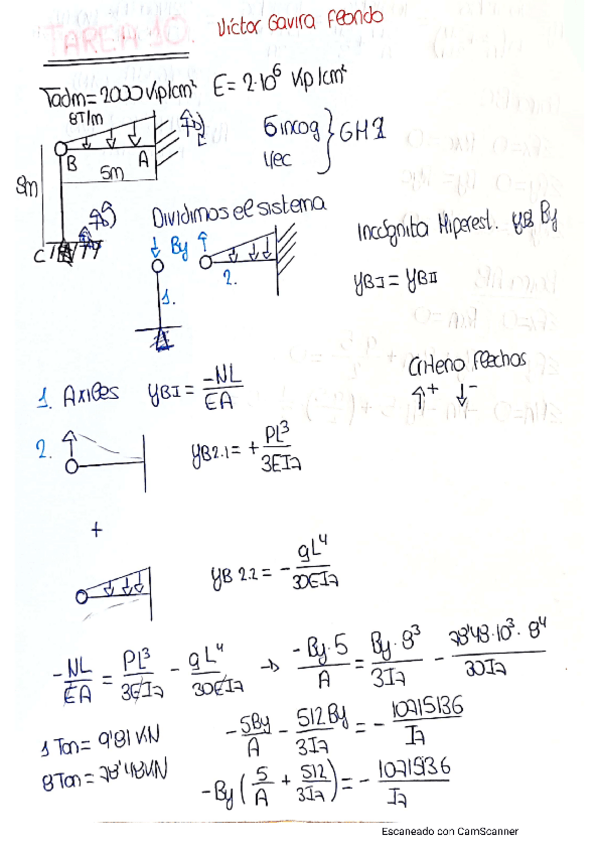 TAREA 10. Víctor Gavira Feondo
Tadm = 2000 Kip/cm² E = 2·10⁶ Kip/cm²
8T/m
B A
5m
8m
C
5 incog
1 ec
GH 1
Dividimos el sistema
By
1.
2.
Incógnita Hiperest. By
yBI = yBII
1. Axiles yBI = -NL/EA
Criterio flechas
+ -
2. yB2.1 = + PL³/3EIz
+
yB 2.2 = - qL⁴/30EIz
-NL/EA = PL³/3EIz - qL⁴/30EIz → -By·5/A = By·8³/3Iz - 78'48·10³·8⁴/30Iz
1 Ton = 9'81 KN
8 Ton = 78'48 KN
-5By/A - 512By/3Iz = - 10715136/Iz
-By(5/A + 512/3Iz) = - 10715136/Iz
Escaneado con CamScanner